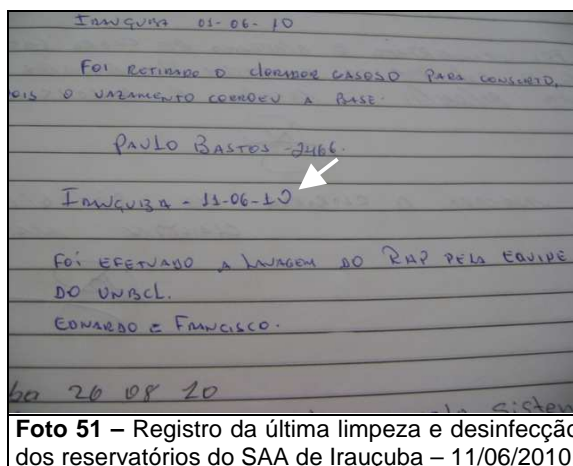 IRAUÇUBA 01-06-10
FOI RETIRADO O CLORADOR GASOSO PARA CONSERTO,
OIS O VAZAMENTO CORROEU A BASE.
PAULO BASTOS -2466.
IRAUÇUBA - 11-06-10
FOI EFETUADO A LAVAGEM DO RAP PELA EQUIPE
DO UNBCL.
EDNARDO E FRANCISCO.
ba 26 08 10
sistem
Foto 51 – Registro da última limpeza e desinfecção
dos reservatórios do SAA de Irauçuba – 11/06/2010